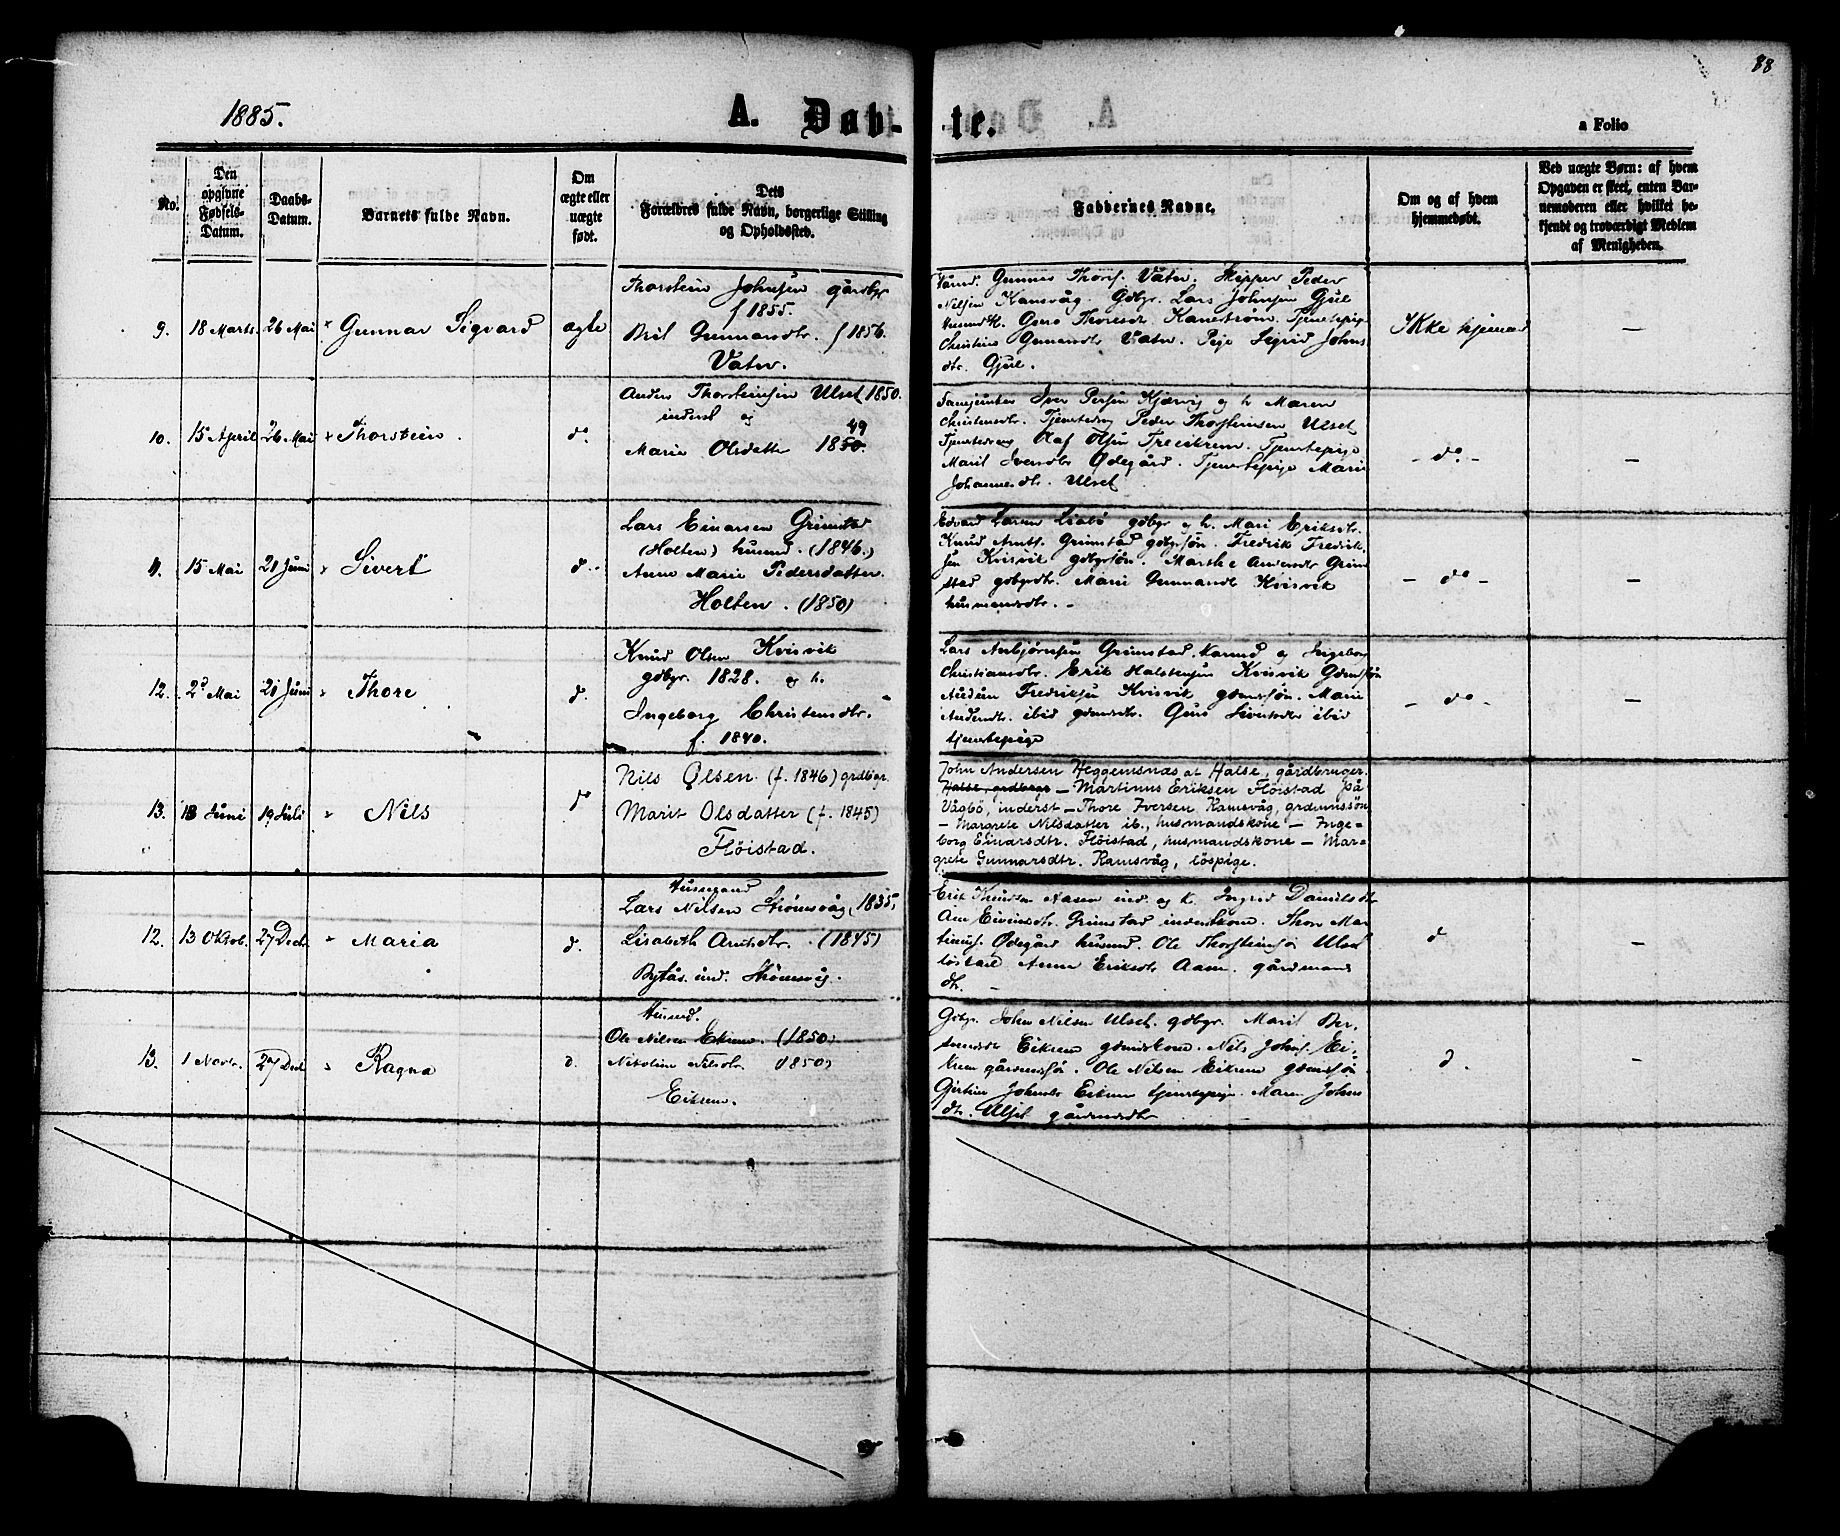 88
1885.
A. Døb-te.
a Folio
No.
Den opgivne Fødsels-Datum.
Daabs-Datum.
Barnets fulde Navn.
Om ægte eller uægte født.
Dets Forældres fulde Navn, borgerlige Stilling og Opholdssted.
Faddernes Navne.
Om og af hvem hjemmedøbt.
Ved uægte Børn: af hvem Opgaven er skeet, enten Barnemoderen eller hvilket bekjendt og troværdigt Medlem af Menigheden.
9. 18 Marts 26 Mai Gunnar Sigvard ægte
Thorstein Johnsen gårdbr
f 1855.
Brit Gunnarsdtr. f 1856.
Vatn.
Gunnes Thorss. Vatn. Skipper Peder
Nilsen Ramsvåg. Gdbgr. Lars Johnsen Gjul
Guro Thoresdr. Kanestrøm. Tjenstepige
Christine Gunnarsdtr Vatn. Pige Sigrid Johns
dtr. Gjul.
Ikke hjemmed —
10. 15 April 26 Mai Thorstein. do.
Anders Thorsteinsen Ulset 1850.
inderst og
49
Marit Olsdatter 1850.
Iver Persen Kjørvig og h. Maren
Christensdtr. Tjenestedreng Peder Thorsteinsen Ulset
Tjenestedreng Olaf Olsen Treeikrem. Tjenstepige
Marit Iversdtr Ødegård. Tjenstepige Marie
Johannesdtr. Ulset
- do. - —
11. 15 Mai 21 Juni Sivert d..
Lars Einarsen Grimstad
(Holten) husmd. (1846.)
Anne Marie Pedersdatter.
Holten. (1850)
Edvard Larsen Liabø gdbgr og h. Mari Eriksdtr.
Knud Arntss. Grimstad gdbgrsøn. Fredrik Fredrik
sen Kvisvik gdbgrsøn. Marthe Andersdtr Grim
stad gdbgrdtr. Marie Gunnarsdtr Kvisvik
husmandsdtr. -
- do - —
12. 2d Mai 21 Juni Thore d.
Knud Olsen Kvisvik
gdbgr. 1828. og h.
Ingeborg Christensdtr.
f. 1840.
Lars Anbjørnsen Grimstad. Kaarmd og Ingeborg
Christiansdtr. Erik Halstensen Kvisvik Gdmdsøn
Audun Fredriksen Kvisvik gdmdssøn. Marie
Andersdtr. ibid gdmdsdtr. Guro Sivertsdtr ibid
tjenstepige
- do - —
13. 13 Juni 19 Juli Nils d
Nils Olsen. (f. 1846) grdbgr.
Marit Olsdatter (f. 1845)
Fløistad.
John Andersen Heggemsnæs at Halse, gårdbruger.
Halse, grdbrgr — Martinus Eriksen Fløistad på
Vågbø, inderst — Thore Iversen Ramsvåg, grdmnssøn
— Margrete Nilsdatter ib., husmandskone — Inge=
borg Einarsdtr. Fløistad, husmandskone — Mar=
grete Gunnarsdtr. Ramsvåg, løspige.
12. 13 Oktob. 27 Decb. Maria d.
Husmand
Lars Nilsen Strømsvåg (1835)
Lisabeth Arntsdtr. (1845)
ind. Strømsvåg.
Erik Knudsen Nasen ind. og k. Ingrid Danielsdtr
Ane Eivindsdtr. Grimstad inderstkone. Thore Mar
tinus. Ødegård husmd. Ole Thorsteinsø Ulset
løskarl Anne Eriksdtr Aam. gårdmands
dtr. —
d —
13. 1 Novbr. 27 Decb Ragna d.
Husmd.
Ole Nilsen Eikrem. (1850)
Nikoline Nilsdtr 1850)
Eikrem.
Gdbgr. John Nilsen Ulset. gdbgr. Marit Ber,
Eikrem gdmdskone. Nils Johns. Ei,
krem gårdmdsø. Ole Nilsen Eikrem gdmssøn
Gjertine Johnsdtr Eikrem tjenstepige. Maren Johns
dtr. Ulset gårdmdsdtr
d. —